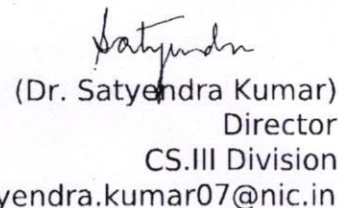 Satyendra
(Dr. Satyendra Kumar)
Director
CS.III Division
yendra.kumar07@nic.in